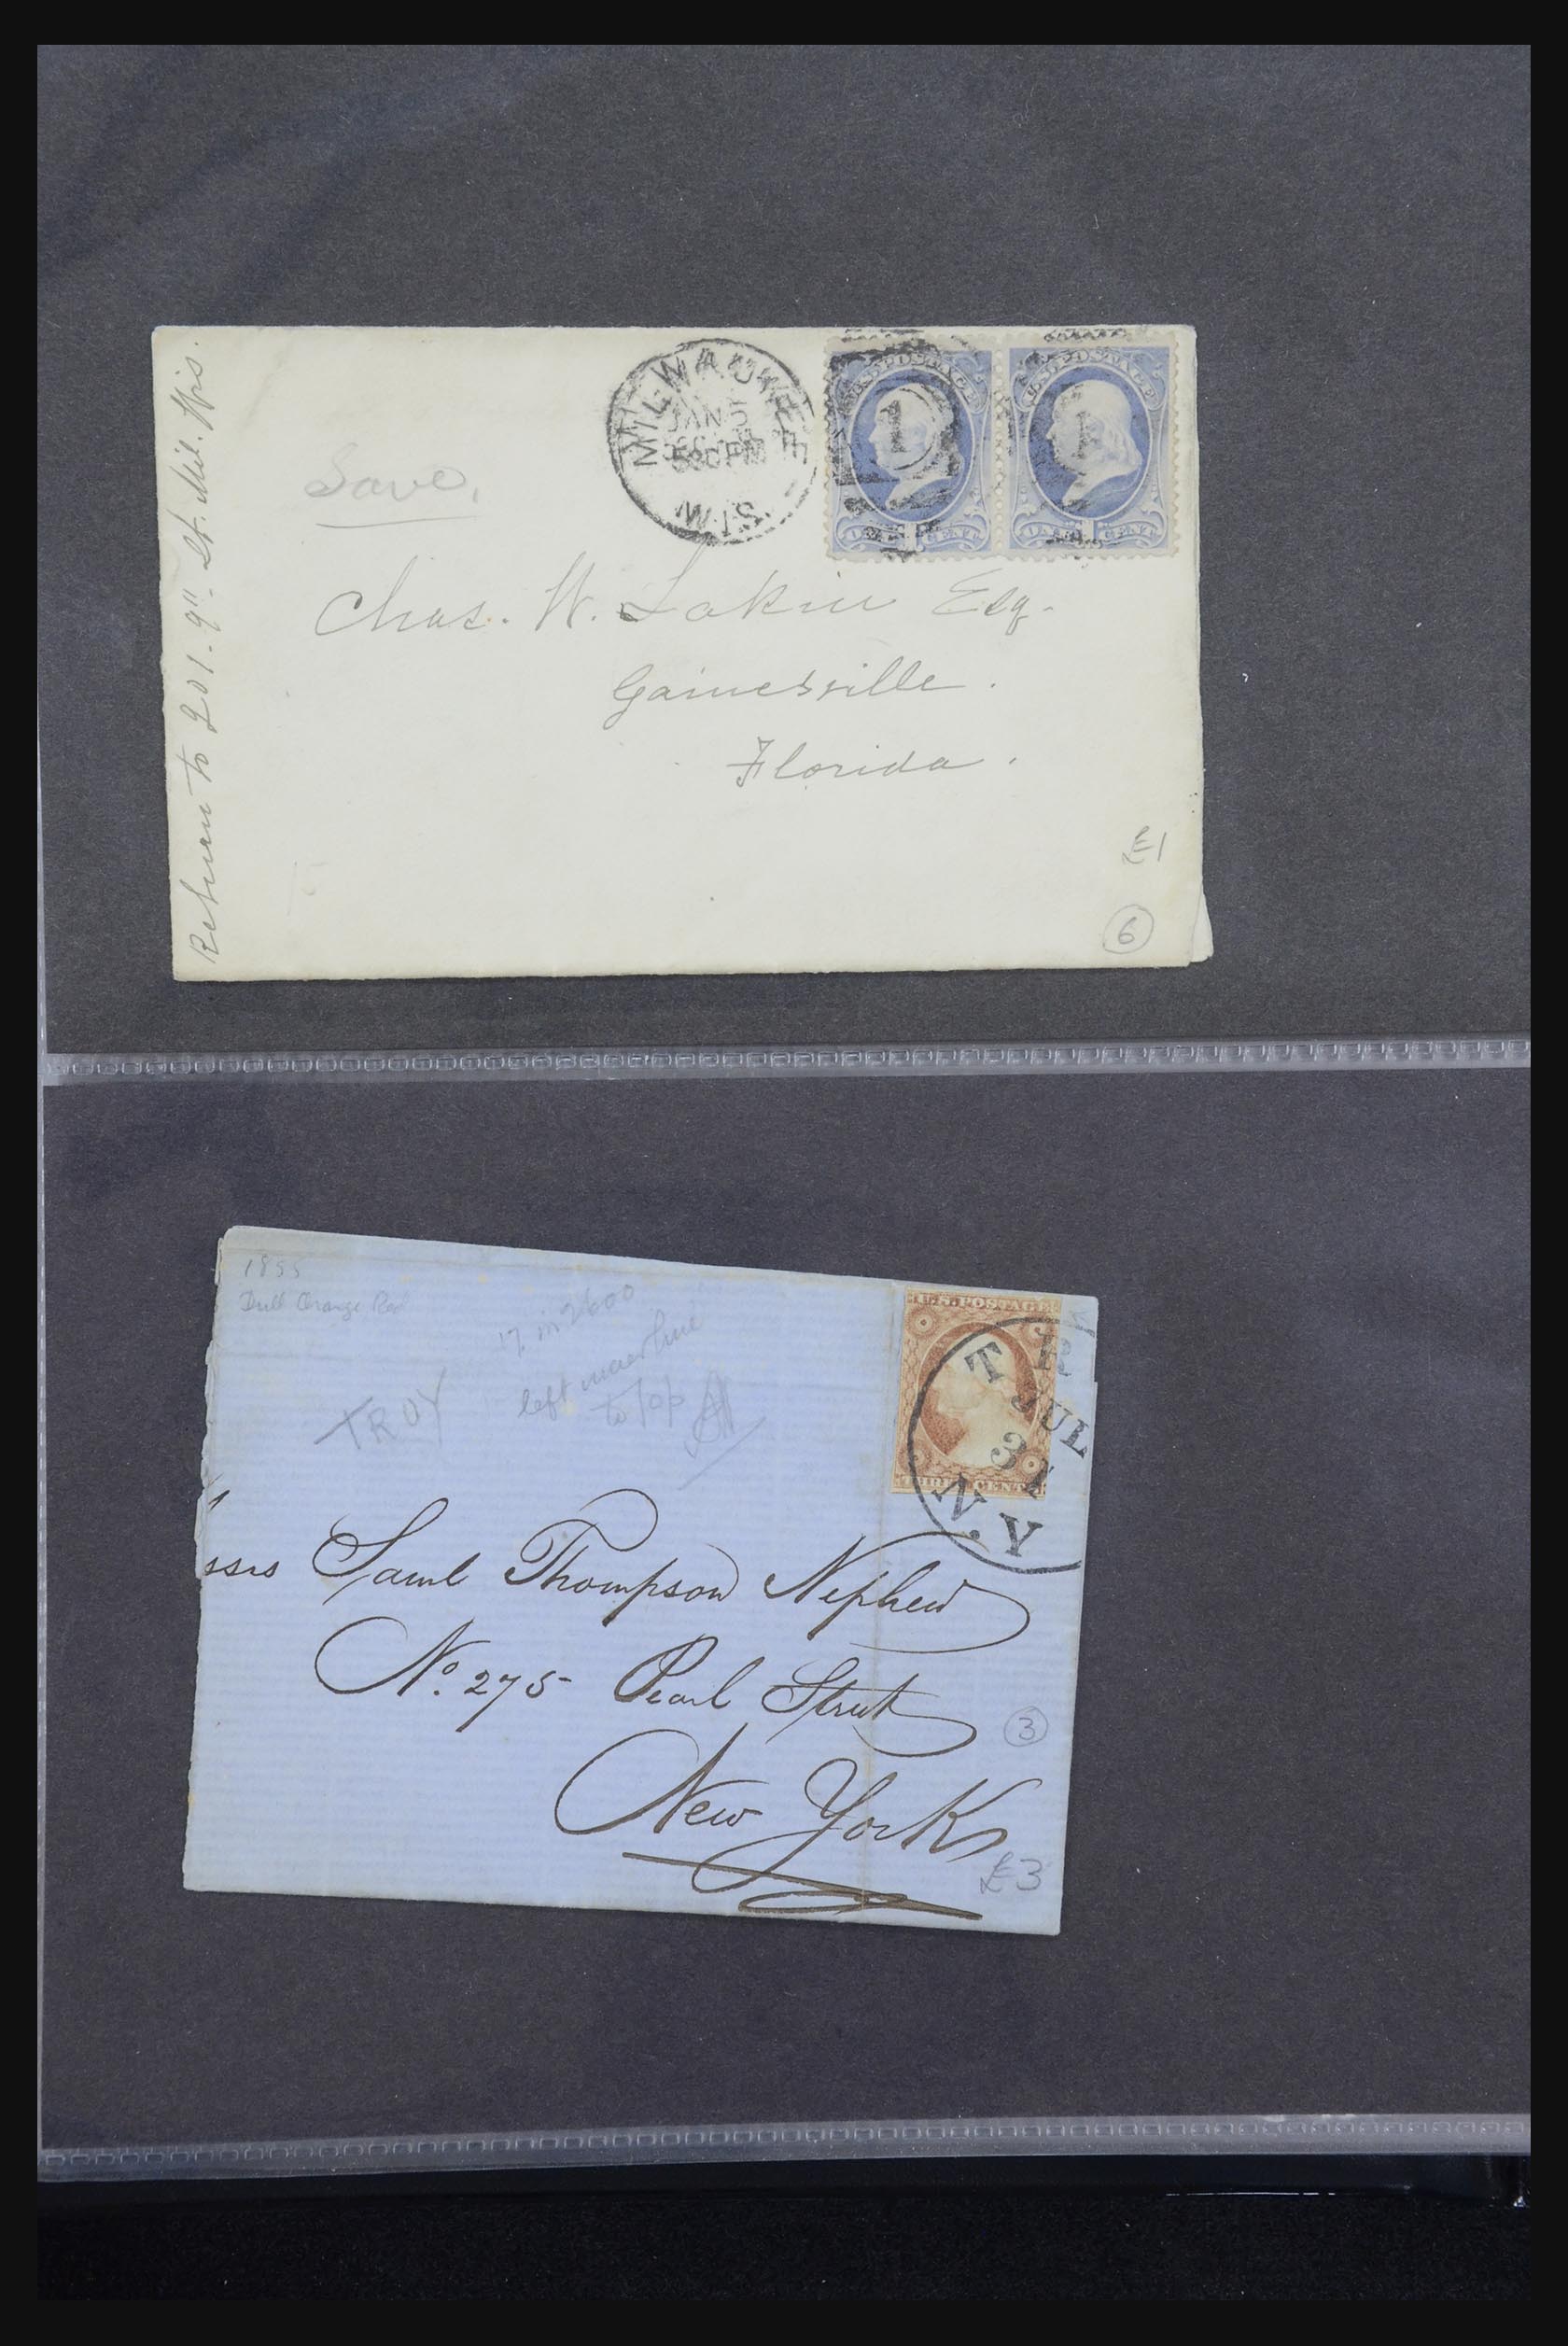 Return to 201. 9" St. Mil. Wis.
MILWAUKEE
JAN 5
530 PM
WIS.
1
U.S. POSTAGE
ONE 1 CENT
U.S. POSTAGE
ONE 1 CENT
Save.
Chas. W. Lakin Esq.
Gainesville.
Florida.
£1
6
1855
Dull Orange Red
17 in 2600
left inner line
to top
TROY
U.S. POSTAGE
THREE CENTS
TR
JUL
31
N.Y
ssrs Saml Thompson Nephew
No. 275 Pearl Street
3
New York
£3